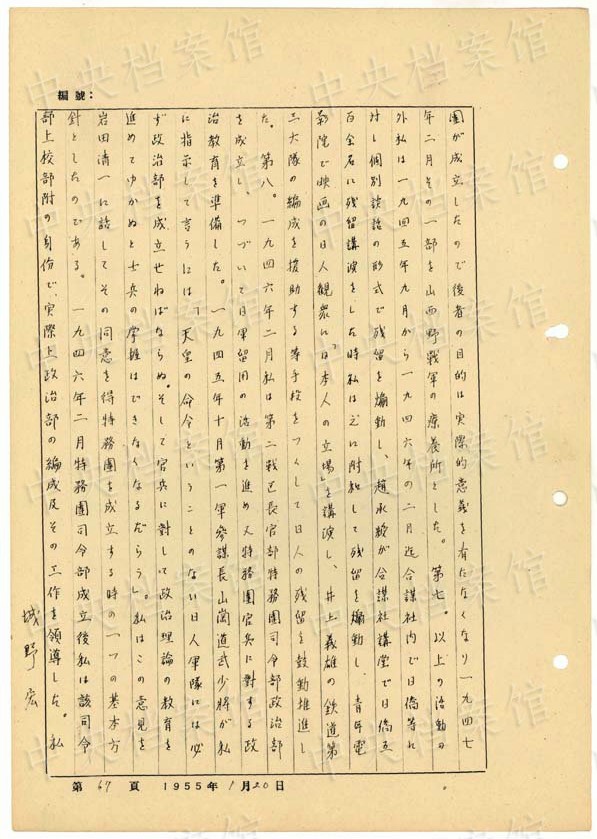 編號：
團が成立したので後者の目的は実際的意義を有たなくなり一九四七
年二月その一部を山西野戰軍の療養所とした。第七。以上の活動の
外私は一九四五年九月から一九四六年の二月迄合謀社内で日僑等に
対し個別談話の形式で残留を煽動し、趙承綬が合謀社講堂で日僑五
百余名に残留講演をした時私は之に附和して残留を煽動し、青年電
影院で映画の日人観衆に「日本人の立場」を講演し、井上義雄の鉄道第
三大隊の編成を援助する等手段をつくして日人の残留を鼓動推進し
た。第八。一九四六年二月私は第二戰区長官部特務團司令部政治部
を成立し、つづいて日軍留用の活動を進め又特務團官兵に対する政
治教育を準備した。一九四五年十月第一軍参謀長山岡道武少将が私
に指示して言うには「天皇の命令ということのない日人軍隊には必
ず政治部を成立せねばならぬ。そして官兵に対して政治理論の教育を
進めてゆかぬと士兵の掌握はできなくなるだらう」。私はこの意見を
岩田清一に話してその同意を得特務團を成立する時の一つの基本方
針としたのである。一九四六年二月特務團司令部成立後私は該司令
部上校部附の身份で実際上政治部の編成及その工作を領導した。私
城野宏
第67頁 1955年1月20日
中央档案馆